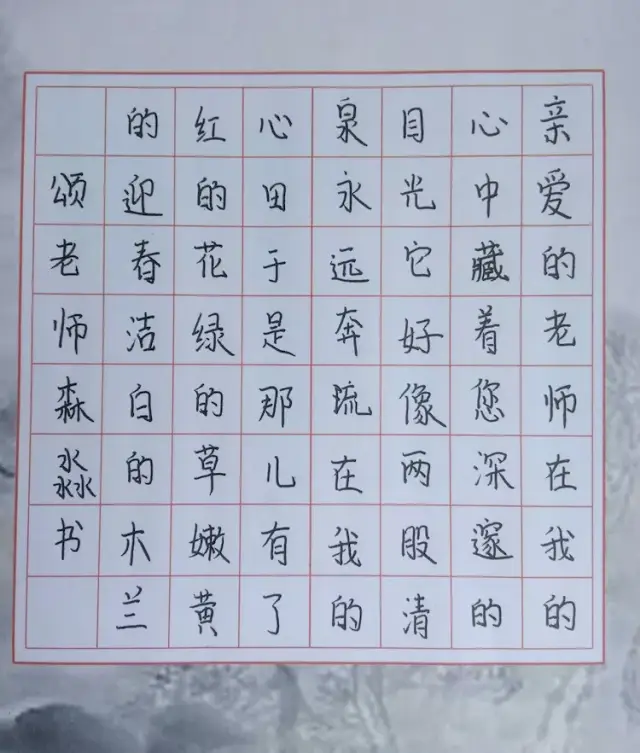 亲爱的老师在我的
心中藏着您深邃的
目光它好像两股清
泉永远奔流在我的
心田于是那儿有了
红的花绿的草嫩黄
的迎春洁白的木兰
颂老师森淼书